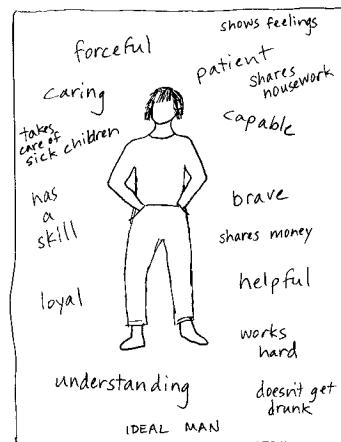 shows feelings
forceful
patient
shares
housework
caring
capable
takes
care of
sick children
has
a
skill
brave
shares money
loyal
helpful
works
hard
understanding
doesn't get
drunk
IDEAL MAN